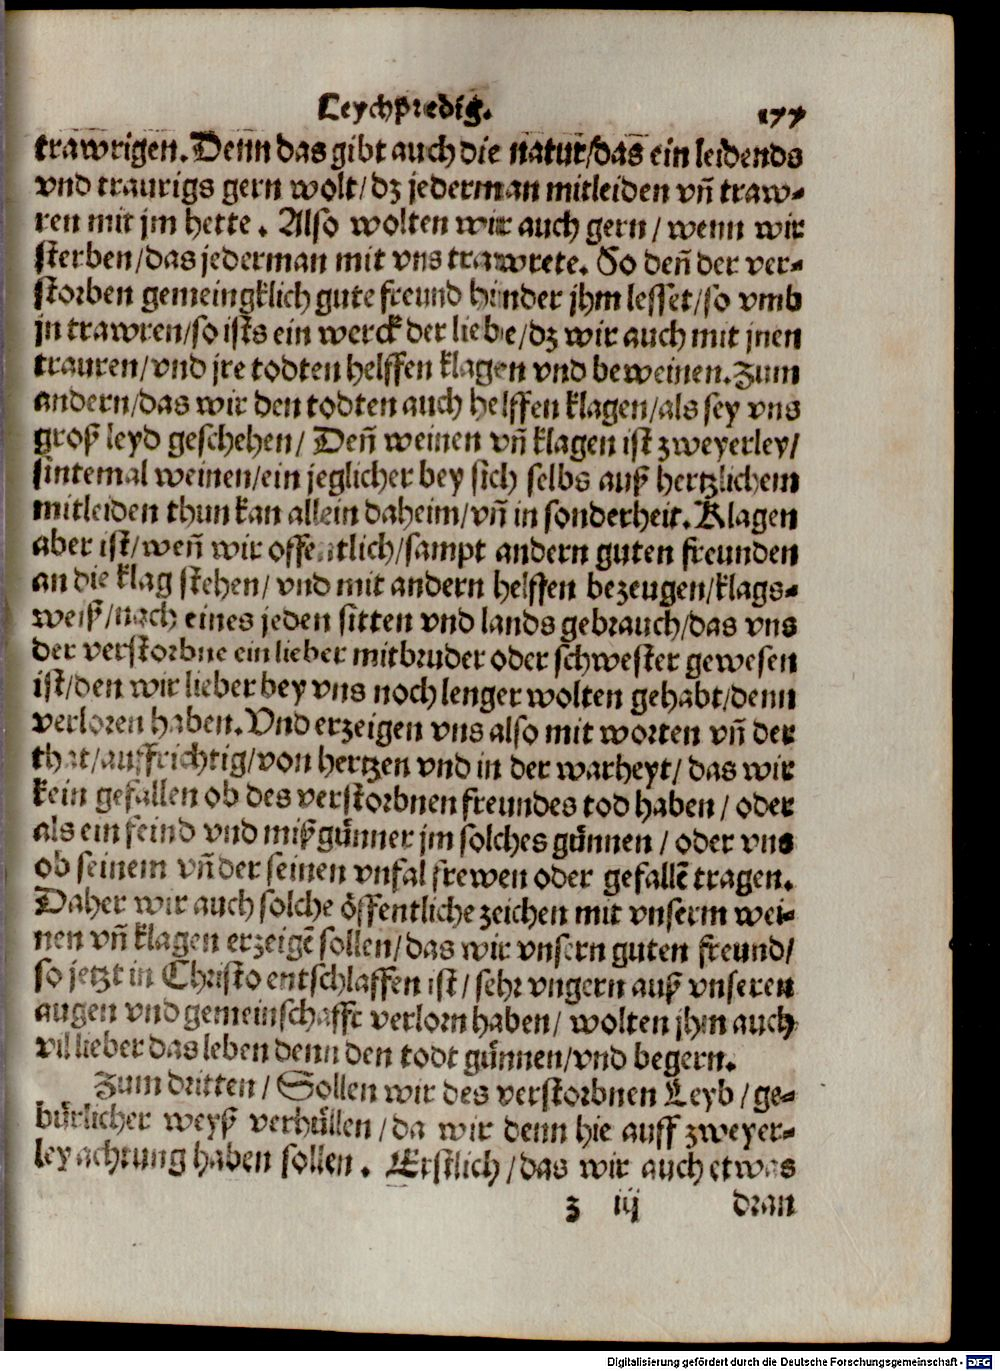 Leychpredig. 177
trawrigen. Denn das gibt auch die natur/das ein leidends
vnd traurigs gern wolt/dz jederman mitleiden vñ traw-
ren mit jm hette. Also wolten wir auch gern/wenn wir
sterben/das jederman mit vns trawrete. So deñ der ver-
storben gemeingklich gute freund hinder jhm lesset/so vmb
jn trawren/so ists ein werck der liebe/dz wir auch mit jnen
trauren/vnd jre todten helffen klagen vnd beweinen. Zum
andern/das wir den todten auch helffen klagen/als sey vns
groß leyd geschehen/Deñ weinen vñ klagen ist zweyerley/
sintemal weinen/ein jeglicher bey sich selbs auß hertzlichem
mitleiden thun kan allein daheim/vñ in sonderheit. Klagen
aber ist/weñ wir offentlich/sampt andern guten freunden
an die klag stehen/vnd mit andern helffen bezeugen/klags-
weiß/nach eines jeden sitten vnd lands gebrauch/das vns
der verstorbne ein lieber mitbruder oder schwester gewesen
ist/den wir lieber bey vns noch lenger wolten gehabt/denn
verloren haben. Vnd erzeigen vns also mit worten vñ der
that/auffrichtig/von hertzen vnd in der warheyt/das wir
kein gefallen ob des verstorbnen freundes tod haben/oder
als ein feind vnd mißgünner jm solches günnen/oder vns
ob seinem vñ der seinen vnfal frewen oder gefallẽ tragen.
Daher wir auch solche öffentliche zeichen mit vnserm wei-
nen vñ klagen erzeigẽ sollen/das wir vnsern guten freund/
so jetzt in Christo entschlaffen ist/sehr vngern auß vnseren
augen vnd gemeinschafft verlorn haben/wolten jhm auch
vil lieber das leben denn den todt günnen/vnd begern.
Zum dritten/Sollen wir des verstorbnen Leyb/ge-
bürlicher weyß verhüllen/da wir denn hie auff zweyer-
ley achtung haben sollen. Erstlich/das wir auch etwas
z iij dran
Digitalisierung gefördert durch die Deutsche Forschungsgemeinschaft - DFG